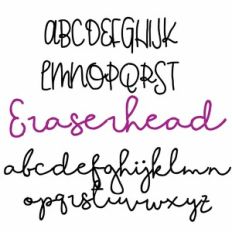 ABCDEFGHIJK
LMNOPQRST
Eraserhead
abcdefghijklmn
opqrstuvwxyz